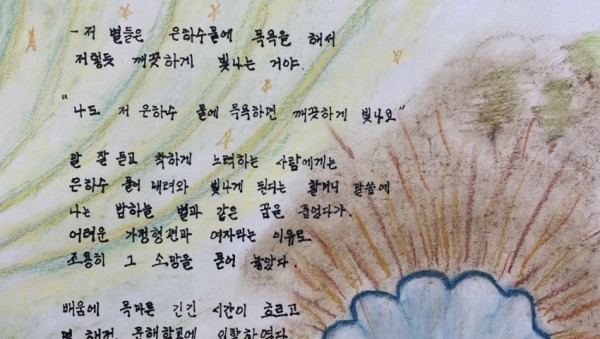 - 저 별들은 은하수물에 목욕을 해서
저렇듯 깨끗하게 빛나는 거야.
"나도 저 은하수 물에 목욕하면 깨끗하게 빛나요"
말 잘 듣고 착하게 노력하는 사람에게는
은하수 물이 내려와 빛나게 된다는 할머니 말씀에
나는 밤하늘 별과 같은 꿈을 품었다가.
어려운 가정형편과 여자라는 이유로
조용히 그 소망을 묻어 놓았다.
배움에 목마른 긴긴 시간이 흐르고
문해학교에 입학하였다